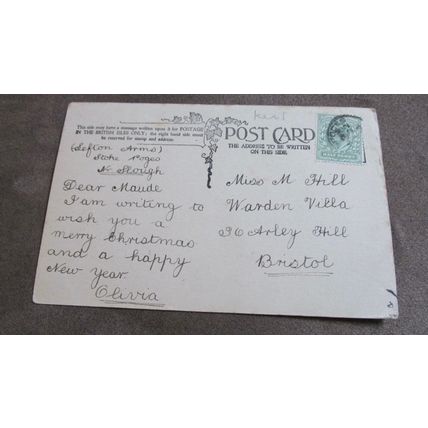 Kent
This side may have a message written upon it for POSTAGE
IN THE BRITISH ISLES ONLY; the right hand side must
be reserved for stamp and address.
POST CARD
THE ADDRESS TO BE WRITTEN
ON THIS SIDE
(Sefton Arms)
Stoke Poges
Nr Slough
Dear Maude
I am writing to
wish you a
merry Christmas
and a happy
New year
Olivia
Miss M Hill
Warden Villa
96 Arley Hill
Bristol
HALF PENNY